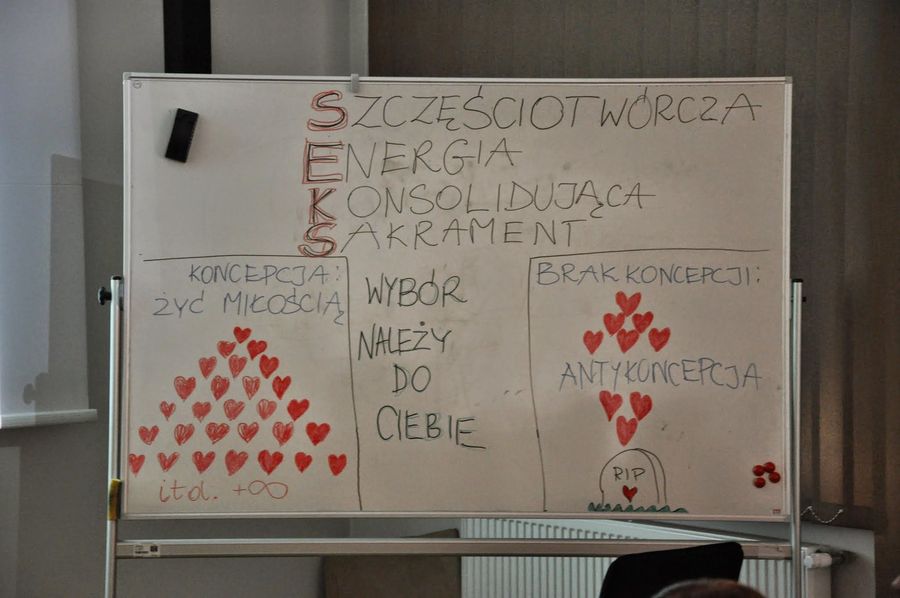 SZCZĘŚCIOTWÓRCZA
ENERGIA
KONSOLIDUJĄCA
SAKRAMENT
KONCEPCJA:
ŻYĆ MIŁOŚCIĄ
itd. +∞
WYBÓR
NALEŻY
DO
CIEBIE
BRAK KONCEPCJI:
ANTYKONCEPCJA
RIP